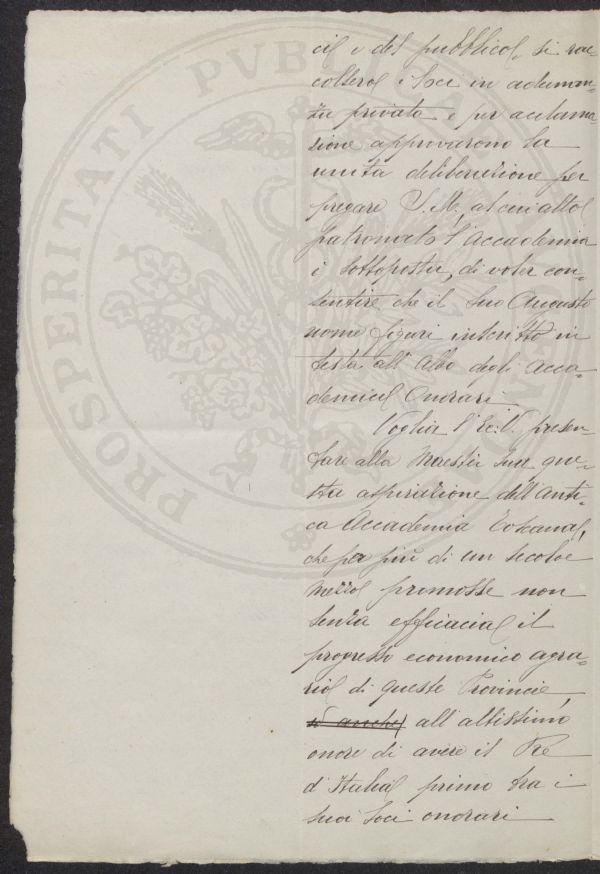 cil e del pubblico, si rac=
colsero i Soci in adunan=
za privata e per acclama=
zione approvarono la
unita deliberazione per
pregare S. M. al cui alto
patronato l'Accademia
è sottoposta, di voler con=
sentire che il Suo Augusto
nome figuri inscritto in
testa all'Albo degli Acca=
demici Onorari.
Voglia l'Ec: V. presen=
tare alla Maestà Sua que=
sta aspirazione dell'anti=
ca Accademia Toscana,
che per più di un secolo e
mezzo promosse non
senza efficacia il
progresso economico agra=
rio di queste Provincie,
all'altissimo
onore di avere il Re
d'Italia primo tra i
suoi Soci onorari
PROSPERITATI PUBLICAE